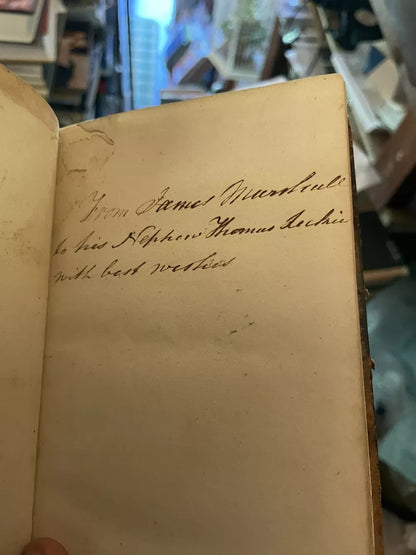 From James Marshall
to his Nephew Thomas Leckie
with best weshes